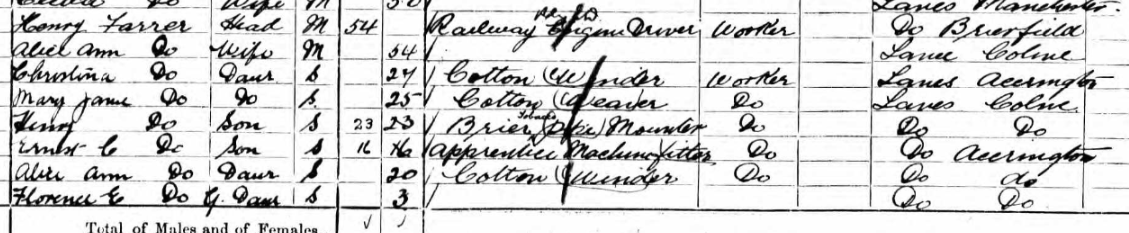 Wife M 50 Lancs Manchester
Henry Farrer Head M 54 Railway Engine Driver Worker Do Brierfield
Alice Ann Do Wife M 54 Lanc Colne
Christina Do Daur S 27 Cotton Winder Worker Lancs Accrington
Mary Jane Do Do S 25 Cotton Weaver Do Lancs Colne
Henry Do Son S 23 23 Brier Tobacco Pipe Mounter Do Do Do
Ernest C Do Son S 16 16 Apprentice Machine Fitter Do Do Accrington
Alice Ann Do Daur S 20 Cotton Winder Do Do do
Florence E Do G. Daur S 3 Do Do
Total of Males and of Females